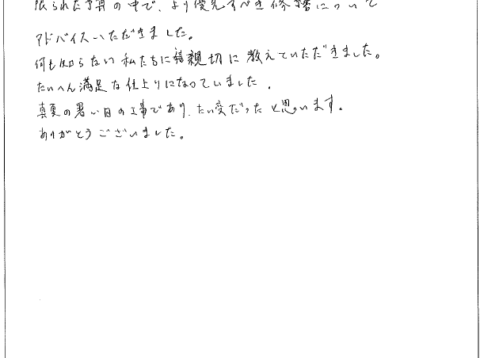 限られた予算の中で、より優先すべき修繕について
アドバイスいただきました。
何も知らない私たちに親切に教えていただきました。
たいへん満足な仕上りになっていました。
真夏の暑い日の工事であり、たい変だったと思います。
ありがとうございました。